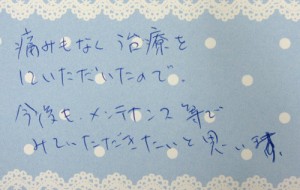 痛みもなく治療を
いただいたので。
今後も、メンテナンス等で
みていただきたいと思います。